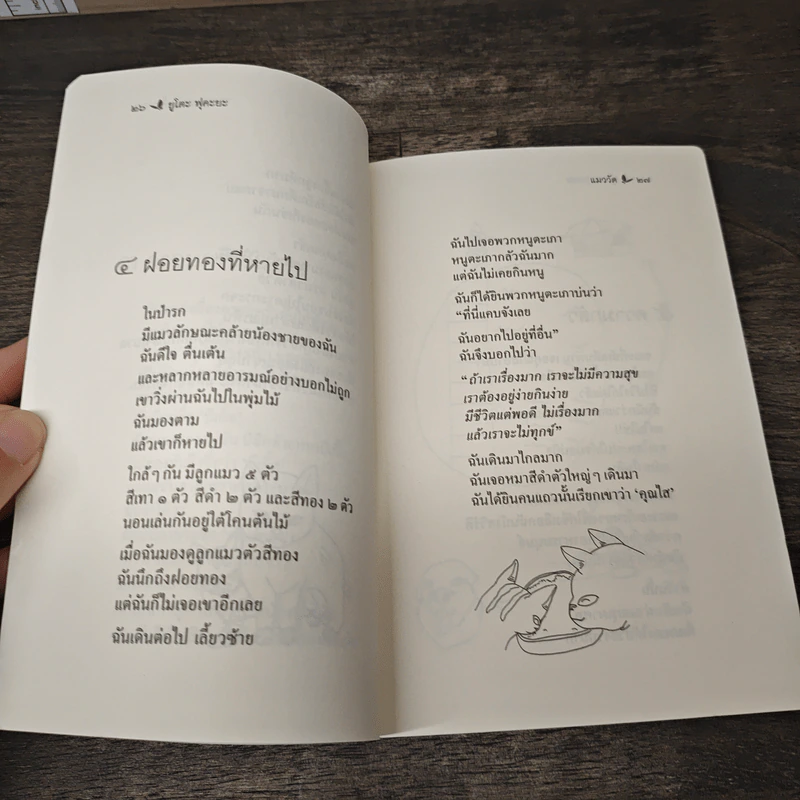 ๒๖ ยูโตะ ฟุคะยะ
๔ ฝอยทองที่หายไป
ในป่ารก
มีแมวลักษณะคล้ายน้องชายของฉัน
ฉันดีใจ ตื่นเต้น
และหลากหลายอารมณ์อย่างบอกไม่ถูก
เขาวิ่งผ่านฉันไปในพุ่มไม้
ฉันมองตาม
แล้วเขาก็หายไป
ใกล้ๆ กัน มีลูกแมว ๕ ตัว
สีเทา ๑ ตัว สีดำ ๒ ตัว และสีทอง ๒ ตัว
นอนเล่นกันอยู่ใต้โคนต้นไม้
เมื่อฉันมองดูลูกแมวตัวสีทอง
ฉันนึกถึงฝอยทอง
แต่ฉันก็ไม่เจอเขาอีกเลย
ฉันเดินต่อไป เลี้ยวซ้าย
แมววัด ๒๗
ฉันไปเจอพวกหนูตะเภา
หนูตะเภากลัวฉันมาก
แต่ฉันไม่เคยกินหนู
ฉันก็ได้ยินพวกหนูตะเภาบ่นว่า
“ที่นี่แคบจังเลย
ฉันอยากไปอยู่ที่อื่น”
ฉันจึงบอกไปว่า
“ถ้าเราเรื่องมาก เราจะไม่มีความสุข
เราต้องอยู่ง่ายกินง่าย
มีชีวิตแต่พอดี ไม่เรื่องมาก
แล้วเราจะไม่ทุกข์”
ฉันเดินมาไกลมาก
ฉันเจอหมาสีดำตัวใหญ่ๆ เดินมา
ฉันได้ยินคนแถวนั้นเรียกเขาว่า ‘คุณไส’